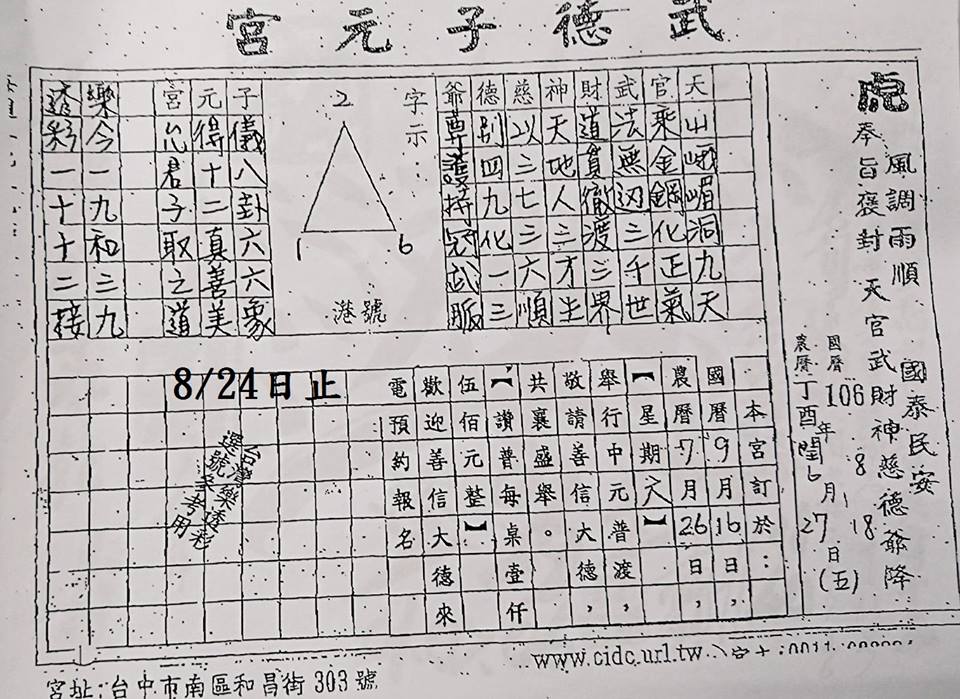 武德子元宮
虎
奉旨褒封 天官武財神慈德爺降
風調雨順 國泰民安
國曆 106年8月18日(五)
農曆 丁酉年閏6月27日
天山峨嵋洞九天
官乘金鋼化正氣
武法無边三千世
財道貫徹渡三界
神天地人三才生
慈以三七三六順
德別四九化一三
爺尊護持冠武脈
字示:
2
1
6
港號
子儀八卦六六象
元得十二真善美
宮心君子取之道
樂今一九和三九
透彩一十十二接
本宮訂於:
國曆9月16日,
農曆7月26日
【星期六】
舉行中元普渡,
敬請善信大德,
共襄盛舉。
【讚普每桌壹仟
伍佰元整】
歡迎善信大德來
電預約報名
8/24日止
台灣樂透彩
選號參考用
www.cidc.url.tw
宮址:台中市南區和昌街303號